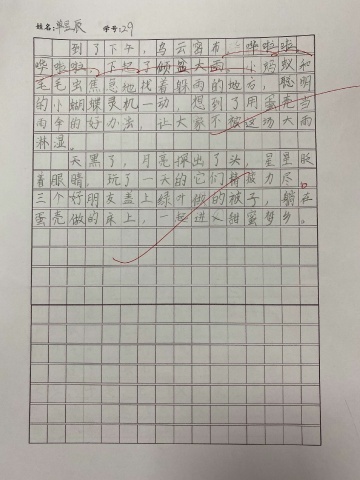 姓名:单昱辰 学号:29
到了下午，乌云密布，哗啦啦，
哗啦啦，下起了倾盆大雨。小蚂蚁和
毛毛虫焦急地找着躲雨的地方，聪明
的小蝴蝶灵机一动，想到了用蛋壳当
雨伞的好办法，让大家不被这场大雨
淋湿。
天黑了，月亮探出了头，星星眨
着眼睛，玩了一天的它们精疲力尽。
三个好朋友盖上绿叶做的被子，躺在
蛋壳做的床上，一起进入甜蜜梦乡。